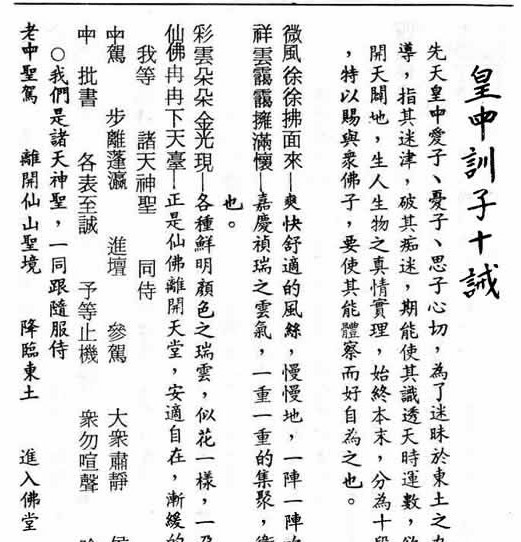 皇中訓子十誡
先天皇中愛子、憂子、思子心切，為了迷昧於東土之
導，指其迷津，破其痴迷，期能使其識透天時運數，
開天闢地，生人生物之真情實理，始終本末，分為十
，特以賜與衆佛子，要使其能體察而好自為之也。
微風徐徐拂面來—爽快舒適的風絲，慢慢地，一陣一陣
祥雲靄靄擁滿懷—嘉慶禎瑞之雲氣，一重一重的集聚，
也。
彩雲朵朵金光現—各種鮮明顏色之瑞雲，似花一樣，一
仙佛冉冉下天臺—正是仙佛離開天堂，安適自在，漸緩的
我等 諸天神聖 同侍
中駕 步離蓬瀛 進壇 參駕 大衆肅靜
中 批書 各表至誠 予等止機 衆勿喧聲
○我們是諸天神聖，一同跟隨服侍
老中聖駕 離開仙山聖境 降臨東土 進入佛堂